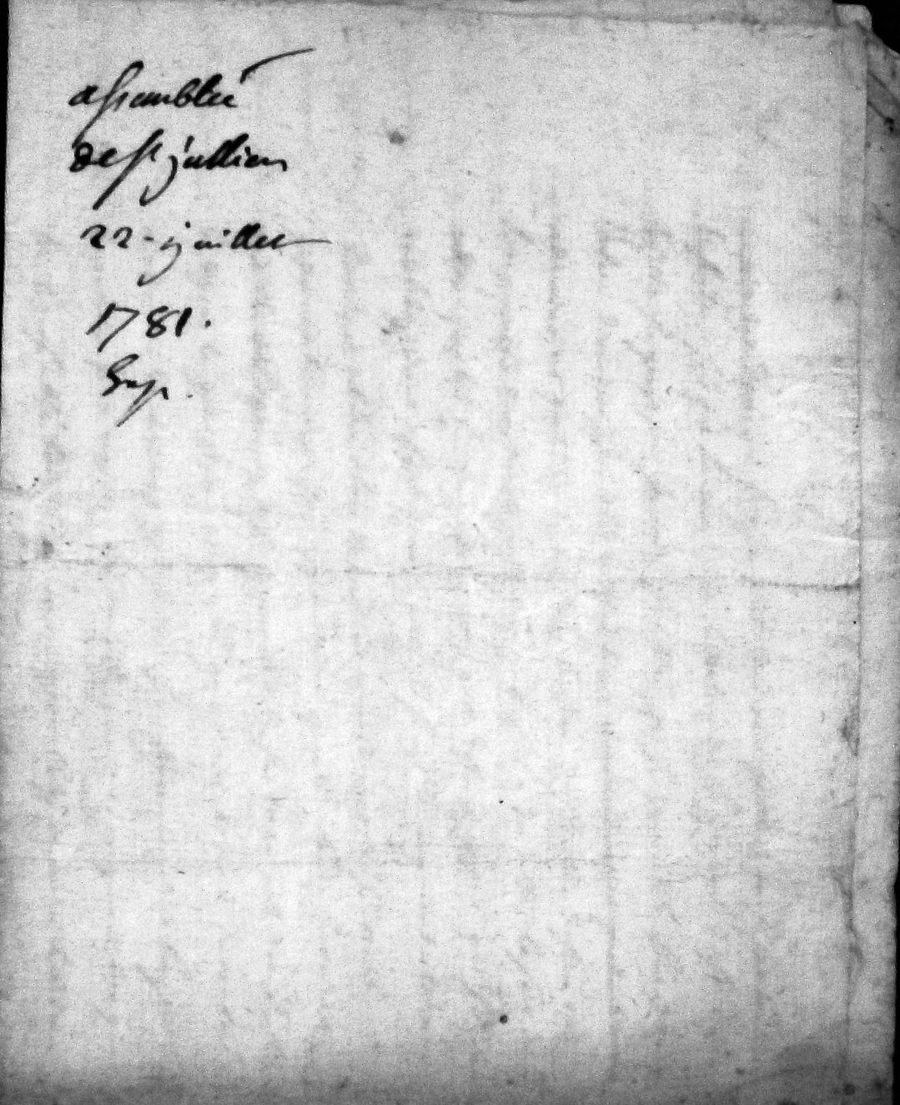 assemblée
de st jullien
22 - juillet
1781.
Exp.